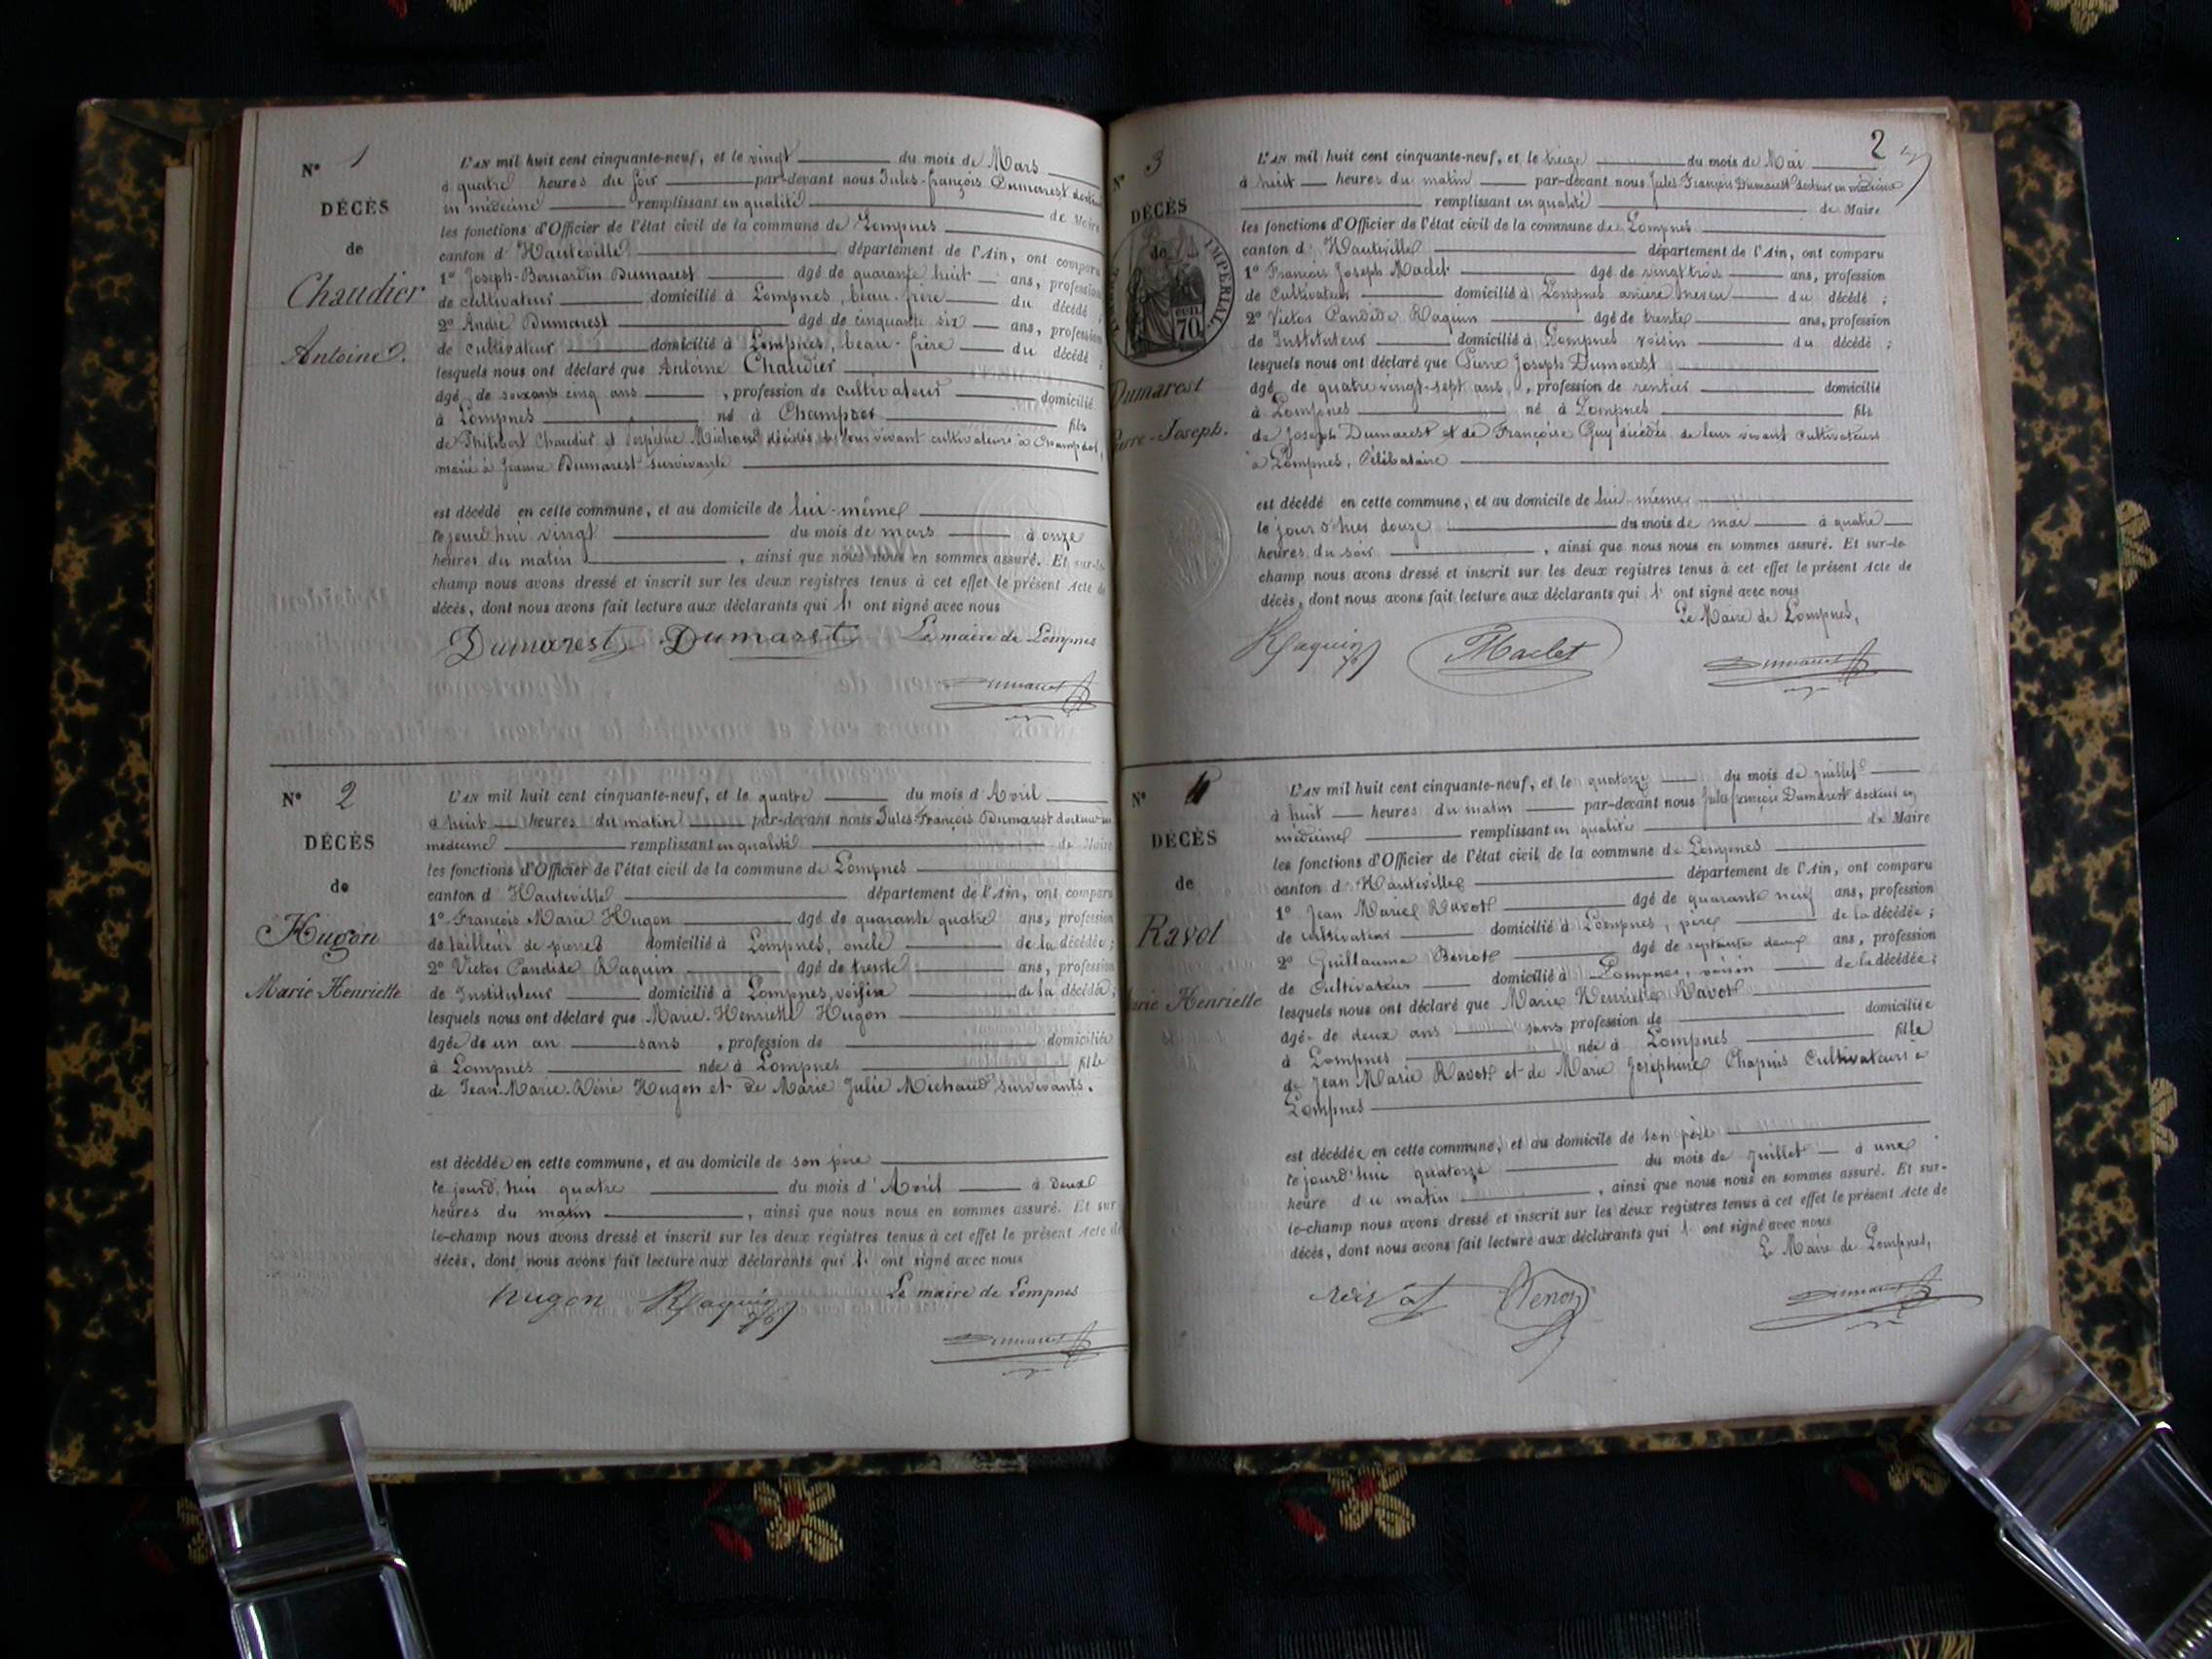 N° 1
DÉCÈS
de
Chaudier
Antoine.
L'AN mil huit cent cinquante-neuf, et le vingt du mois de Mars
à quatre heures du soir par-devant nous Jules-françois Dumarest docteur
en médecine remplissant en qualité de Maire
les fonctions d'Officier de l'état civil de la commune de Lompnes
canton d'Hauteville département de l'Ain, ont comparu
1° Joseph-Bernardin Dumarest âgé de quarante huit ans, profession
de cultivateur domicilié à Lompnes, beau-frère du décédé ;
2° André Dumarest âgé de cinquante six ans, profession
de cultivateur domicilié à Lompnes, beau-frère du décédé ;
lesquels nous ont déclaré que Antoine Chaudier
âgé de soixante cinq ans, profession de cultivateur domicilié
à Lompnes né à Champdor fils
de Philibert Chaudier et Michaud décédés, de leur vivant cultivateurs à Champdor,
marié à Jeanne Dumarest survivante
est décédé en cette commune, et au domicile de lui-même
le jourd'hui vingt du mois de mars à onze
heures du matin, ainsi que nous nous en sommes assuré. Et sur-le-
champ nous avons dressé et inscrit sur les deux registres tenus à cet effet le présent Acte de
décès, dont nous avons fait lecture aux déclarants qui l' ont signé avec nous
Dumarest Dumarest Le maire de Lompnes
Dumarest
N° 2
DÉCÈS
de
Hugon
Marie Henriette
L'AN mil huit cent cinquante-neuf, et le quatre du mois d'Avril
à huit heures du matin par-devant nous Jules-François Dumarest docteur en
médecine remplissant en qualité de Maire
les fonctions d'Officier de l'état civil de la commune de Lompnes
canton d'Hauteville département de l'Ain, ont comparu
1° François Marie Hugon âgé de quarante quatre ans, profession
de tailleur de pierres domicilié à Lompnes, oncle de la décédée ;
2° Victor Candide Raquin âgé de trente ans, profession
de Instituteur domicilié à Lompnes, voisin de la décédée ;
lesquels nous ont déclaré que Marie-Henriette Hugon
âgée de un an sans, profession de domiciliée
à Lompnes née à Lompnes fille
de Jean-Marie-Réné Hugon et de Marie Julie Michaud survivants.
est décédée en cette commune, et au domicile de son père
le jourd'hui quatre du mois d'Avril à deux
heures du matin, ainsi que nous nous en sommes assuré. Et sur
le-champ nous avons dressé et inscrit sur les deux registres tenus à cet effet le présent Acte de
décès, dont nous avons fait lecture aux déclarants qui l' ont signé avec nous
hugon Raquin Le maire de Lompnes
Dumarest
2
N° 3
DÉCÈS
de
IMPÉRIAL
70
Dumarest
Pierre-Joseph.
L'AN mil huit cent cinquante-neuf, et le treize du mois de Mai
à huit heures du matin par-devant nous Jules François Dumarest docteur en médecine
remplissant en qualité de Maire
les fonctions d'Officier de l'état civil de la commune de Lompnes
canton d'Hauteville département de l'Ain, ont comparu
1° François Joseph Maclet âgé de vingt trois ans, profession
de Cultivateur domicilié à Lompnes arrière neveu du décédé ;
2° Victor Candide Raquin âgé de trente ans, profession
de Instituteur domicilié à Lompnes voisin du décédé ;
lesquels nous ont déclaré que Pierre Joseph Dumarest
âgé de quatre vingt-sept ans, profession de rentier domicilié
à Lompnes né à Lompnes fils
de Joseph Dumarest et de Françoise Guy décédés de leur vivant Cultivateurs
à Lompnes, Célibataire
est décédé en cette commune, et au domicile de lui-même
le jour d'hier douze du mois de mai à quatre
heures du soir, ainsi que nous nous en sommes assuré. Et sur-le
champ nous avons dressé et inscrit sur les deux registres tenus à cet effet le présent Acte de
décès, dont nous avons fait lecture aux déclarants qui l' ont signé avec nous
Le Maire de Lompnes,
Raquin Maclet Dumarest
N° 4
DÉCÈS
de
Ravot
Marie Henriette
L'AN mil huit cent cinquante-neuf, et le quatorze du mois de juillet
à huit heures du matin par-devant nous Jules françois Dumarest docteur en
médecine remplissant en qualité de Maire
les fonctions d'Officier de l'état civil de la commune de Lompnes
canton d'Hauteville département de l'Ain, ont comparu
1° Jean Marie Ravot âgé de quarante neuf ans, profession
de cultivateur domicilié à Lompnes, père de la décédée ;
2° Guillaume Benoit âgé de septante deux ans, profession
de Cultivateur domicilié à Lompnes, voisin de la décédée ;
lesquels nous ont déclaré que Marie Henriette Ravot
âgée de deux ans sans profession de domiciliée
à Lompnes née à Lompnes fille
de Jean Marie Ravot et de Marie Joséphine Chapuis Cultivateurs à
Lompnes
est décédée en cette commune, et au domicile de son père
le jourd'hui quatorze du mois de juillet à une
heure du matin, ainsi que nous nous en sommes assuré. Et sur-
le-champ nous avons dressé et inscrit sur les deux registres tenus à cet effet le présent Acte de
décès, dont nous avons fait lecture aux déclarants qui l' ont signé avec nous
Le Maire de Lompnes,
Dumarest